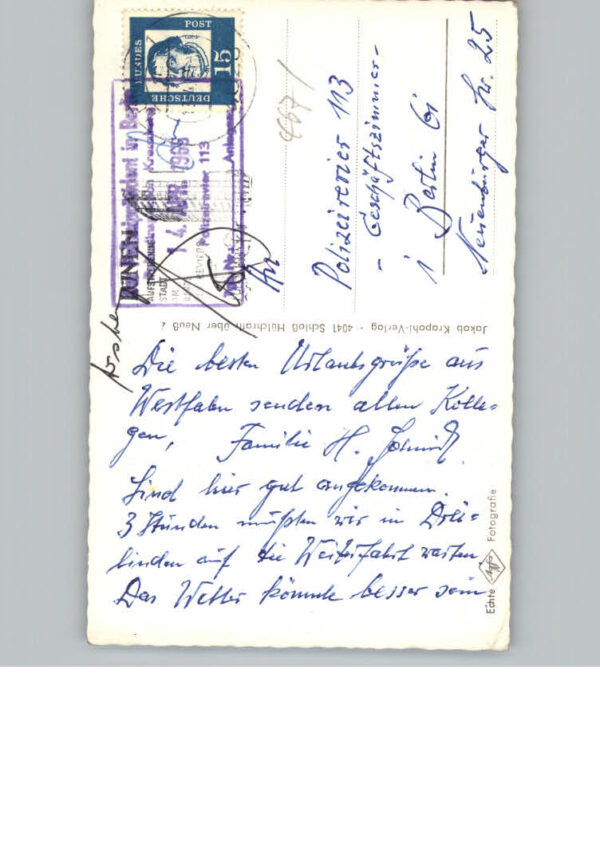 Die besten Urlaubsgrüße aus
Westfalen senden allen Kolle-
gen, Familie H. Schmidt
Sind hier gut angekommen.
3 Stunden mußten wir in Drei-
linden auf die Weiterfahrt warten.
Das Wetter könnte besser sein
An
Polizeirevier 113
- Geschäftszimmer -
1 Berlin 61
Neuenburger Str. 25
4671
DEUTSCHE
BUNDES
POST
15
Polizeirevier 113
LÜNEN
STADT
Jakob Krapohl-Verlag · 4041 Schloß Hülchrath über Neuß 2
Echte Agfa Fotografie